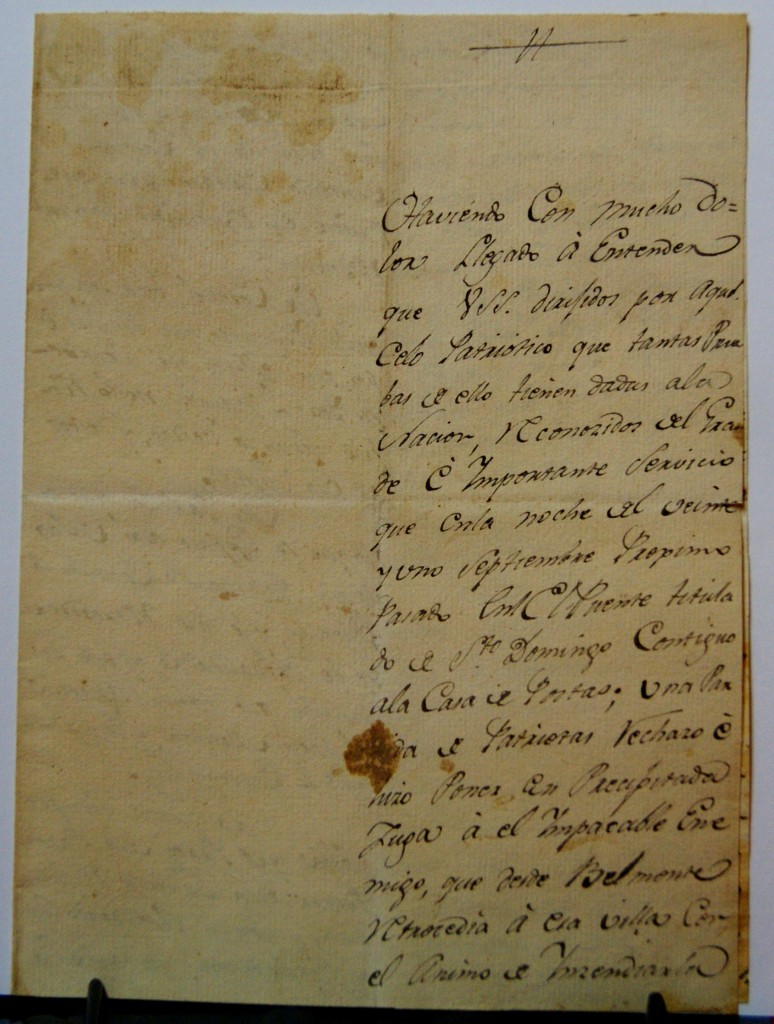 Haviendo Con mucho do=
lor Llegado à Entender
que VSS. dirijidos por Aquel
Celo Patriótico que tantas Prue
bas de ello tienen dadas ala
Nacion, Reconozidos del Gran
de è Ymportante Servicio
que enla noche del veinte
y uno Septiembre Proximo
Pasado En el Puente titula
do de Sto. Domingo Contiguo
ala Casa de Postas; una Par
tida de Patriotas Rechazo è
hizo Poner en Precipitada
Fuga à el Ymplacable Ene
migo, que desde Belmonte
Retrocedia à esa villa Con
el Animo de Ynzendiarla